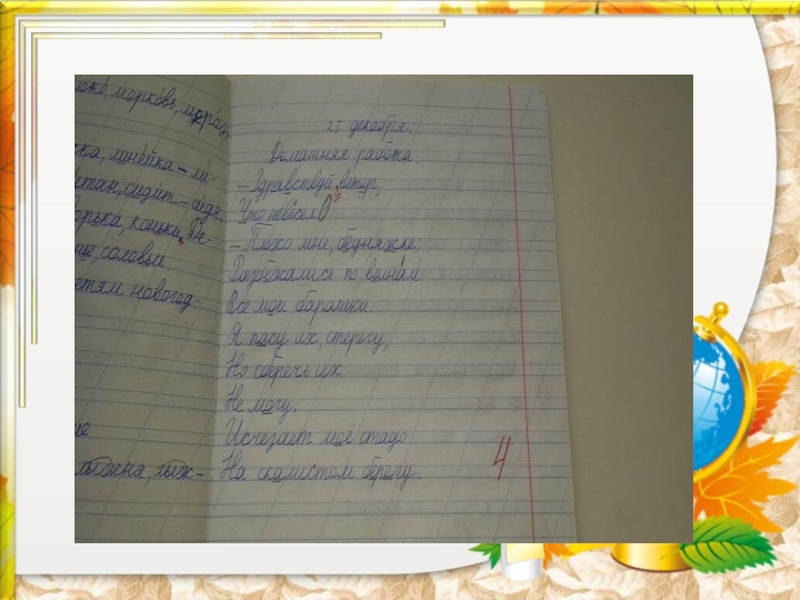 морковь, мороз,
линейка – ли-
сидит – сидя.
коньки. Де-
соловьи.
новогод-
лыж-
25 декабря.
Домашняя работа.
– Здравствуй, ветер,
Что невесел
– Плохо мне, бедняжке:
Разбежались по волнам
Все мои барашки.
Я пасу их, стерегу,
Но сберечь их
Не могу.
Исчезает моё стадо
На скалистом берегу.
4